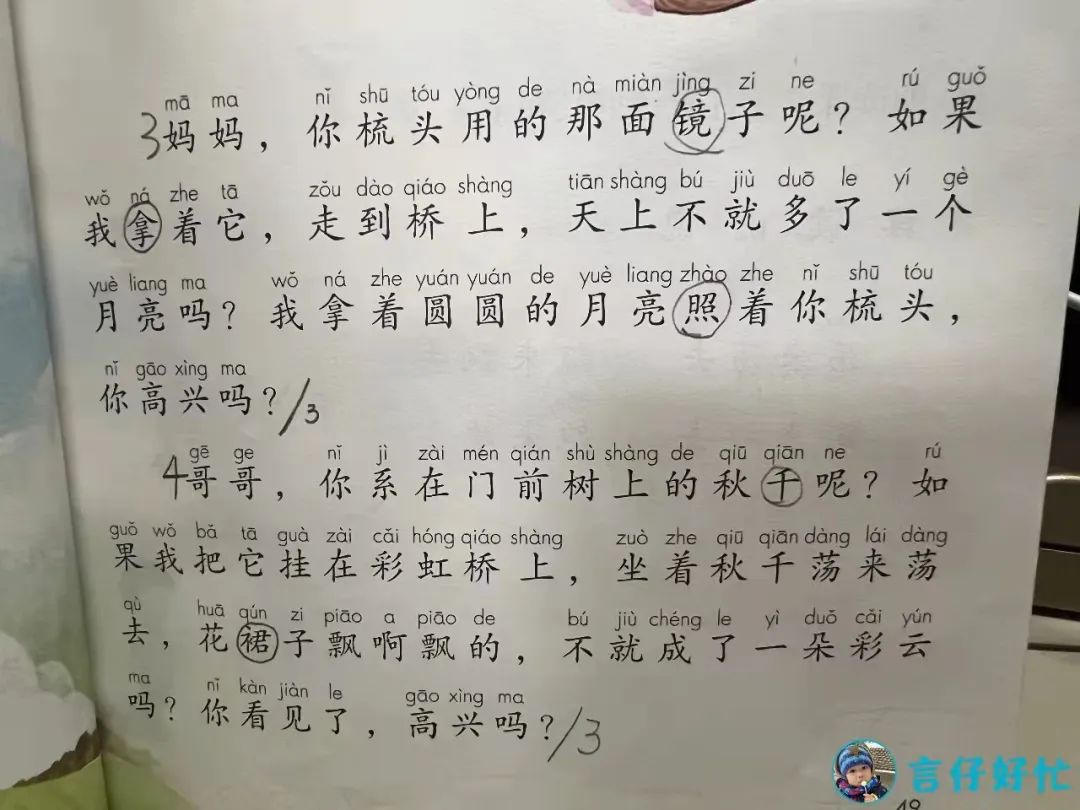 mā ma nǐ shū tóu yòng de nà miàn jìng zi ne rú guǒ
3妈妈，你梳头用的那面镜子呢？如果
wǒ ná zhe tā zǒu dào qiáo shàng tiān shàng bú jiù duō le yí gè
我拿着它，走到桥上，天上不就多了一个
yuè liang ma wǒ ná zhe yuán yuán de yuè liang zhào zhe nǐ shū tóu
月亮吗？我拿着圆圆的月亮照着你梳头，
nǐ gāo xìng ma
你高兴吗？/3
gē ge nǐ jì zài mén qián shù shàng de qiū qiān ne rú
4哥哥，你系在门前树上的秋千呢？如
guǒ wǒ bǎ tā guà zài cǎi hóng qiáo shàng zuò zhe qiū qiān dàng lái dàng
果我把它挂在彩虹桥上，坐着秋千荡来荡
qù huā qún zi piāo a piāo de bú jiù chéng le yì duǒ cǎi yún
去，花裙子飘啊飘的，不就成了一朵彩云
ma nǐ kàn jiàn le gāo xìng ma
吗？你看见了，高兴吗？/3
言仔好忙